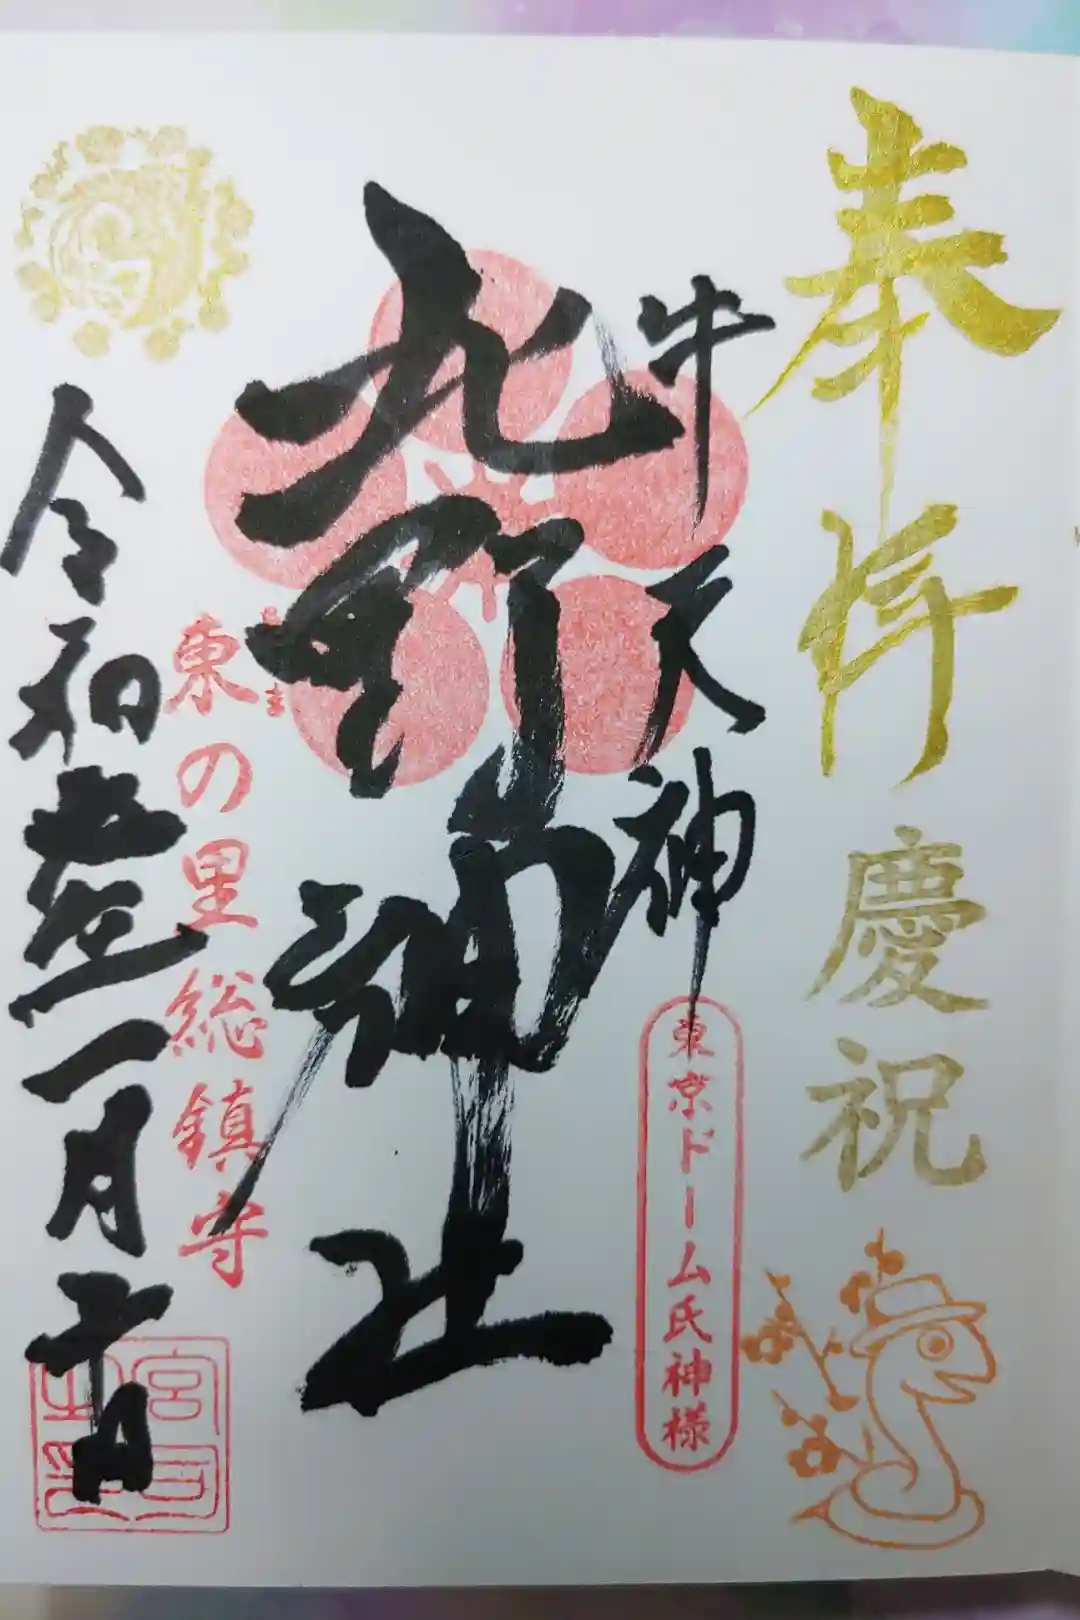 奉拝 慶祝
牛天神
東京ドーム氏神様
北野神社
東の里総鎮守
令和七年一月十日
宮司之印